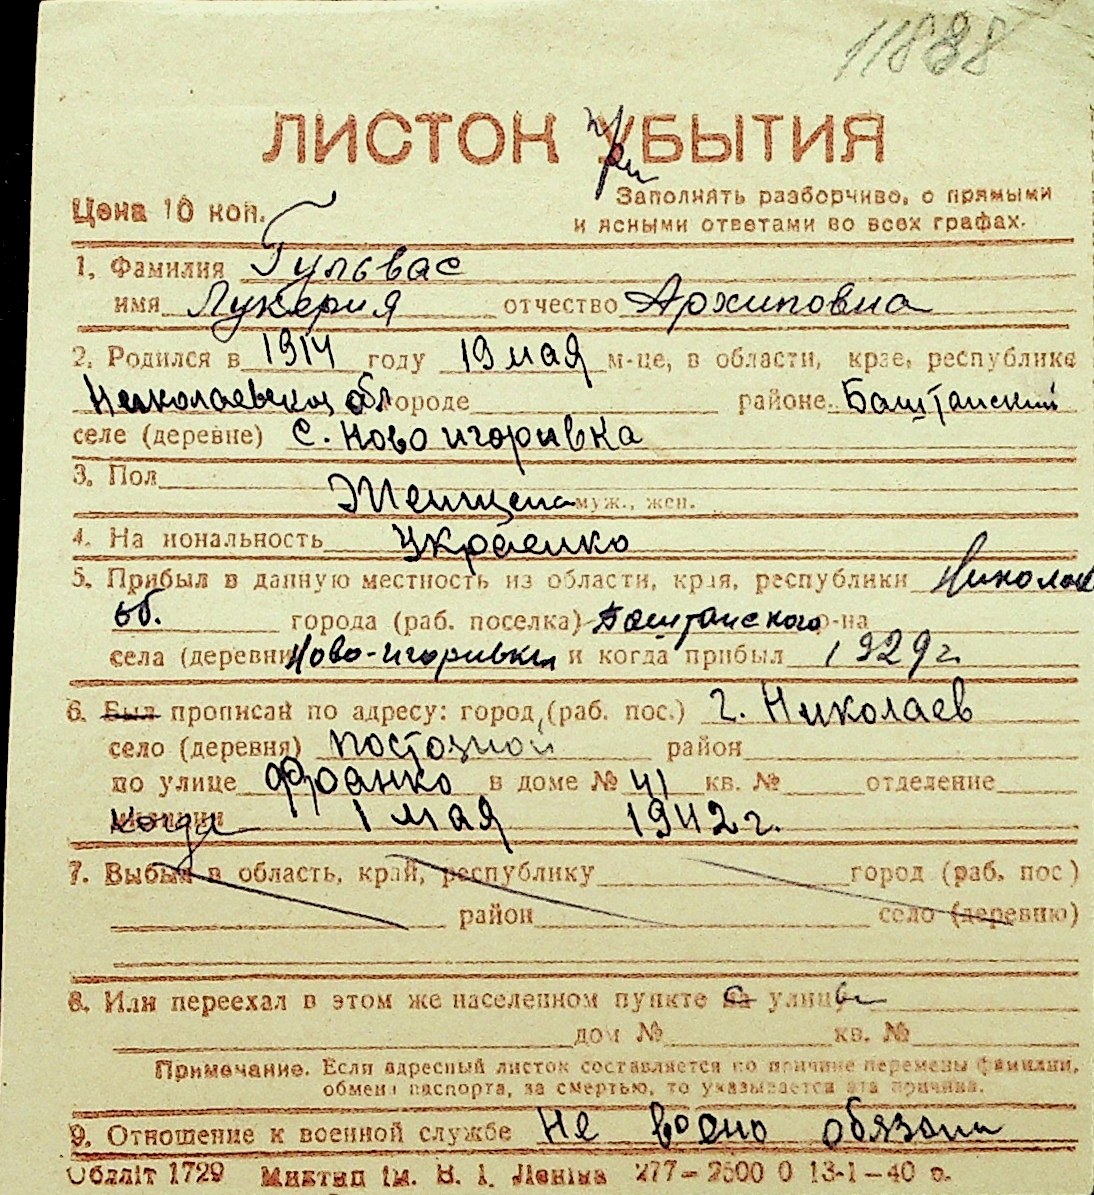 11888
ЛИСТОК УБЫТИЯ
при
Цена 10 коп.
Заполнять разборчиво, с прямыми
и ясными ответами во всех графах.
1. Фамилия Гульвас
имя Лукерия отчество Архиповна
2. Родился в 1914 году 19 мая м-це, в области, крае, республике
Николаевской обл городе районе Баштанский
селе (деревне) с. Ново игоривка
3. Пол Женщена муж., жен.
4. На иональность Украенко
5. Прибыл в данную местность из области, края, республики Николаев
об. города (раб. поселка) Баштанского р-на
села (деревни Ново-игоривки и когда прибыл 1929 г.
6. Был прописан по адресу: город (раб. пос.) г. Николаев
село (деревня) постозной район
по улице Франко в доме № 41 кв. № отделение
когда 1 мая 1942 г.
7. Выбыл в область, край, республику город (раб. пос)
район село (деревню)
8. Или переехал в этом же населенном пункте са улицы
дом № кв. №
Примечание. Если адресный листок составляется по причине перемены фамилии,
обмена паспорта, за смертью, то указывается эта причина.
9. Отношение к военной службе Не воено обязани
Обліт 1729 Миктип ім. В. І. Леніна 277-2500 0 13-1-40 р.